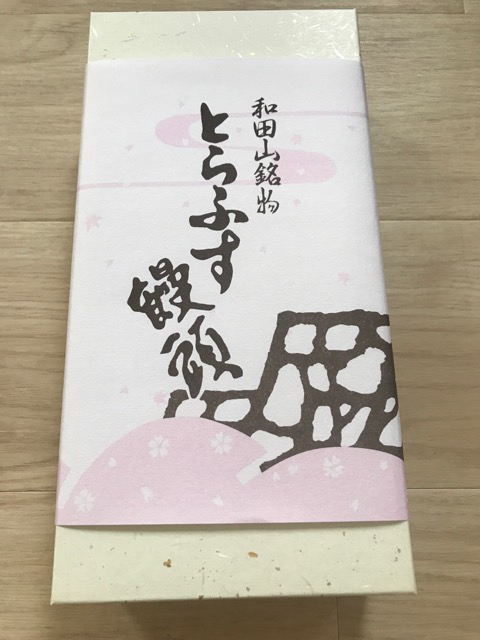 和田山銘物
とらふす
饅頭